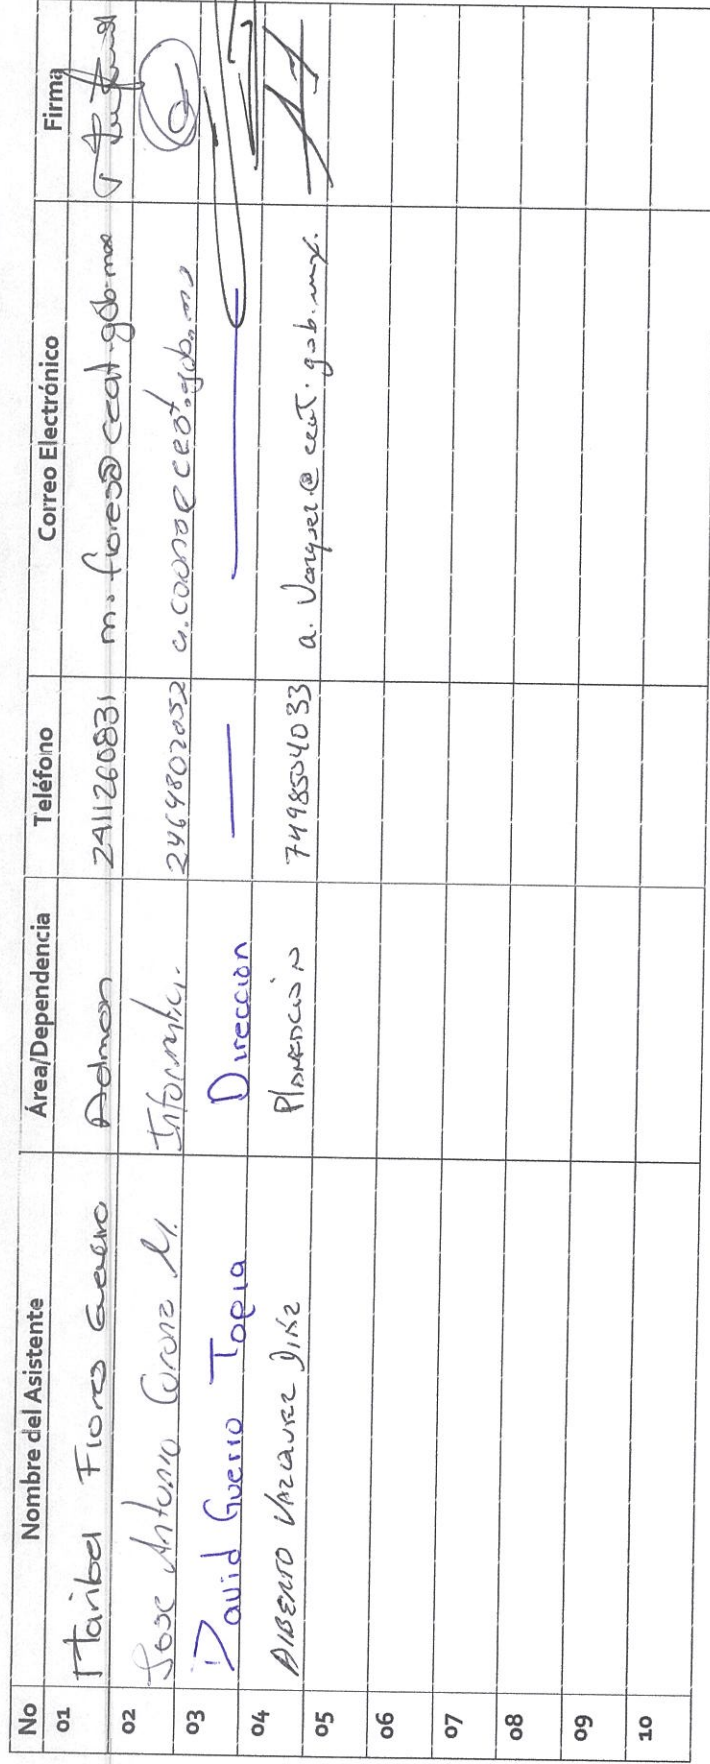 No Nombre del Asistente Área/Dependencia Teléfono Correo Electrónico Firma
01 Maribel Flores Admon 2411260831 m.flores@ceat.gob.mx
02 Jose Antonio Corona M. Informatica. 2464802052
03 David Guerro Tapia Dirección — —
04 Alberto Vazquez Diaz Planeación 7498504033 a.Vazquez@ceat.gob.mx.
05
06
07
08
09
10